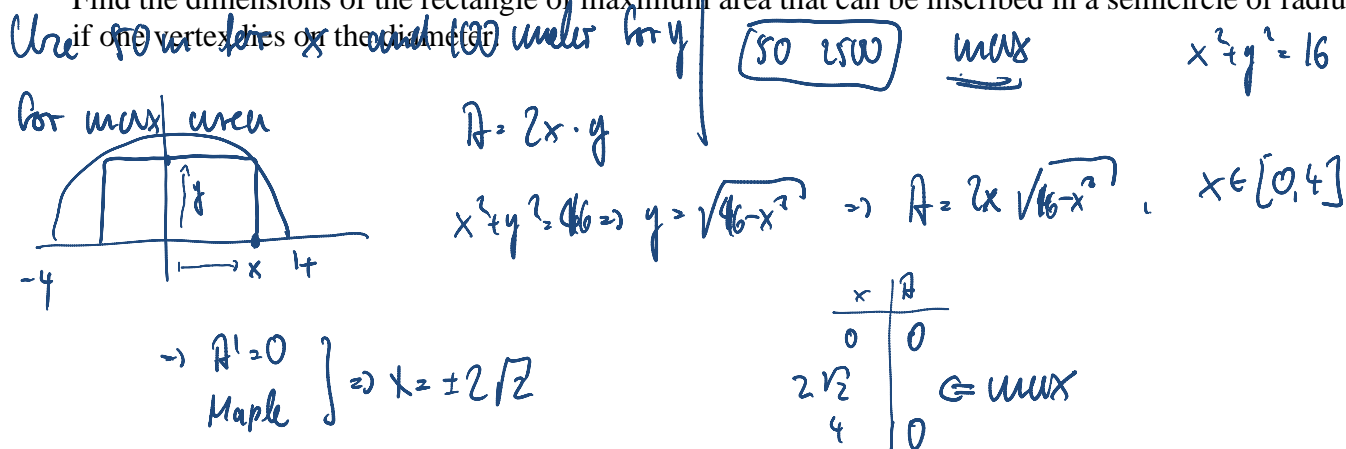 Find the dimensions of the rectangle of maximum area that can be inscribed in a semicircle of radiu
if one vertex lies on the diameter
Use 50 m for x and 100 meter for y
50 2500 max
x²+y²=16
for max area
A = 2x · y
y
x²+y²=16 => y = √16-x² => A = 2x √16-x² , x ∈ [0,4]
-4 x 4
x A
0 0
-> A' = 0
Maple
=> x = ±2√2
2√2 <= max
4 0